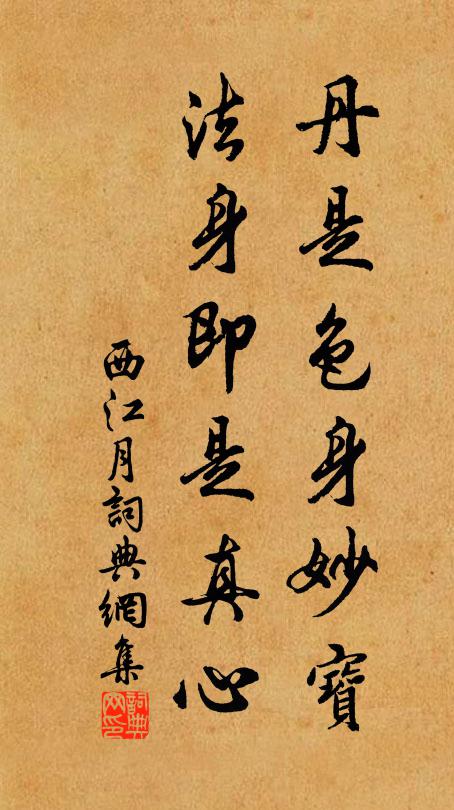 丹是色身妙寶
法身即是真心
西江月詞典網集
詞典網印